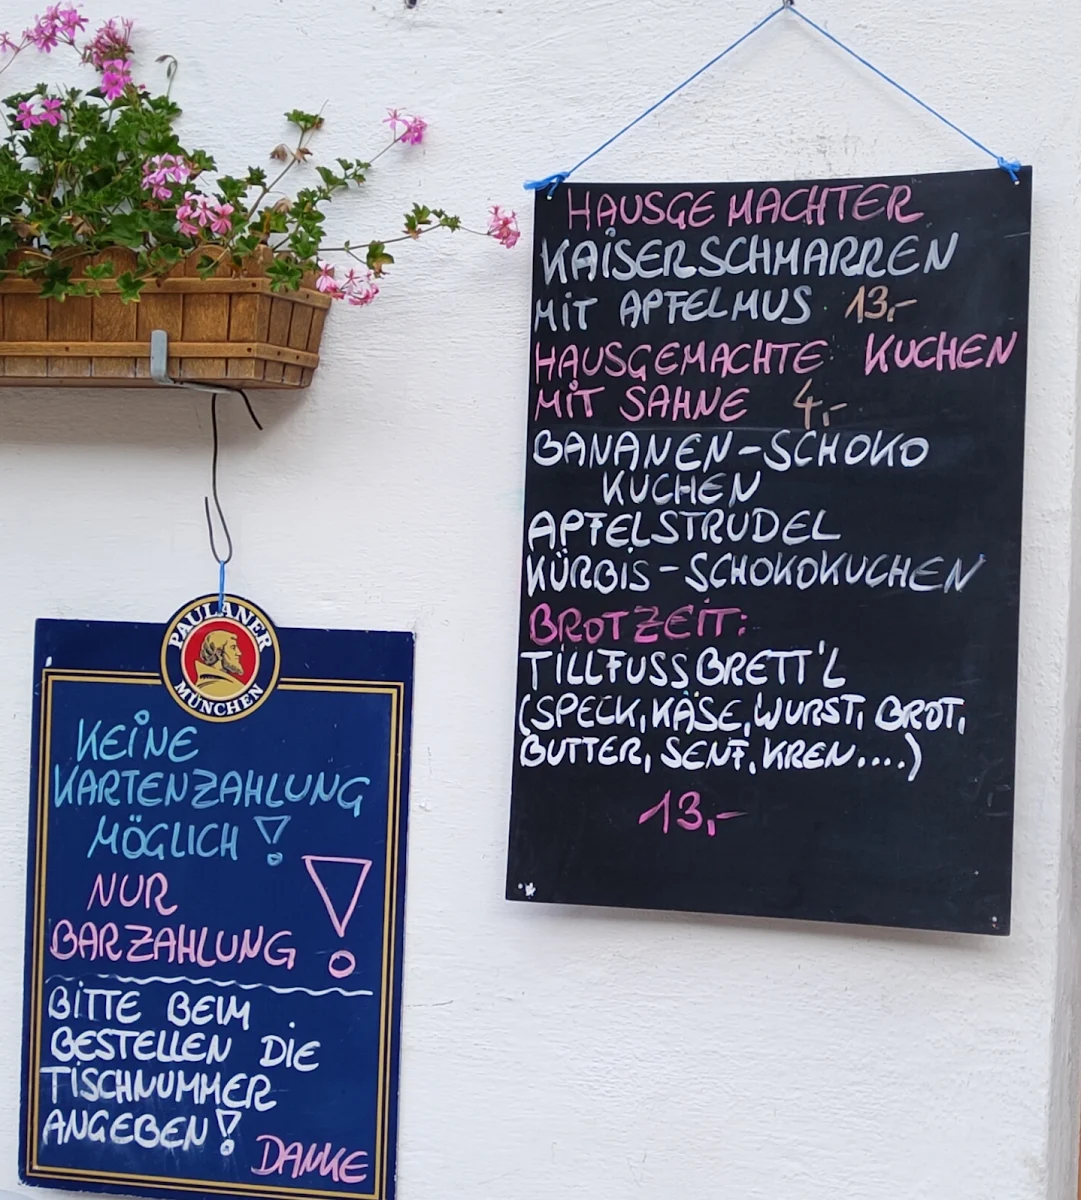 HAUSGEMACHTER
KAISERSCHMARREN
MIT APFELMUS 13,-
HAUSGEMACHTE KUCHEN
MIT SAHNE 4,-
BANANEN-SCHOKO
KUCHEN
APFELSTRUDEL
KÜRBIS-SCHOKOKUCHEN
BROTZEIT:
TILLFUSSBRETT'L
(SPECK, KÄSE, WURST, BROT,
BUTTER, SENF, KREN....)
13,-
PAULANER
MÜNCHEN
KEINE
KARTENZAHLUNG
MÖGLICH!
NUR
BARZAHLUNG!
BITTE BEIM
BESTELLEN DIE
TISCHNUMMER
ANGEBEN!
DANKE